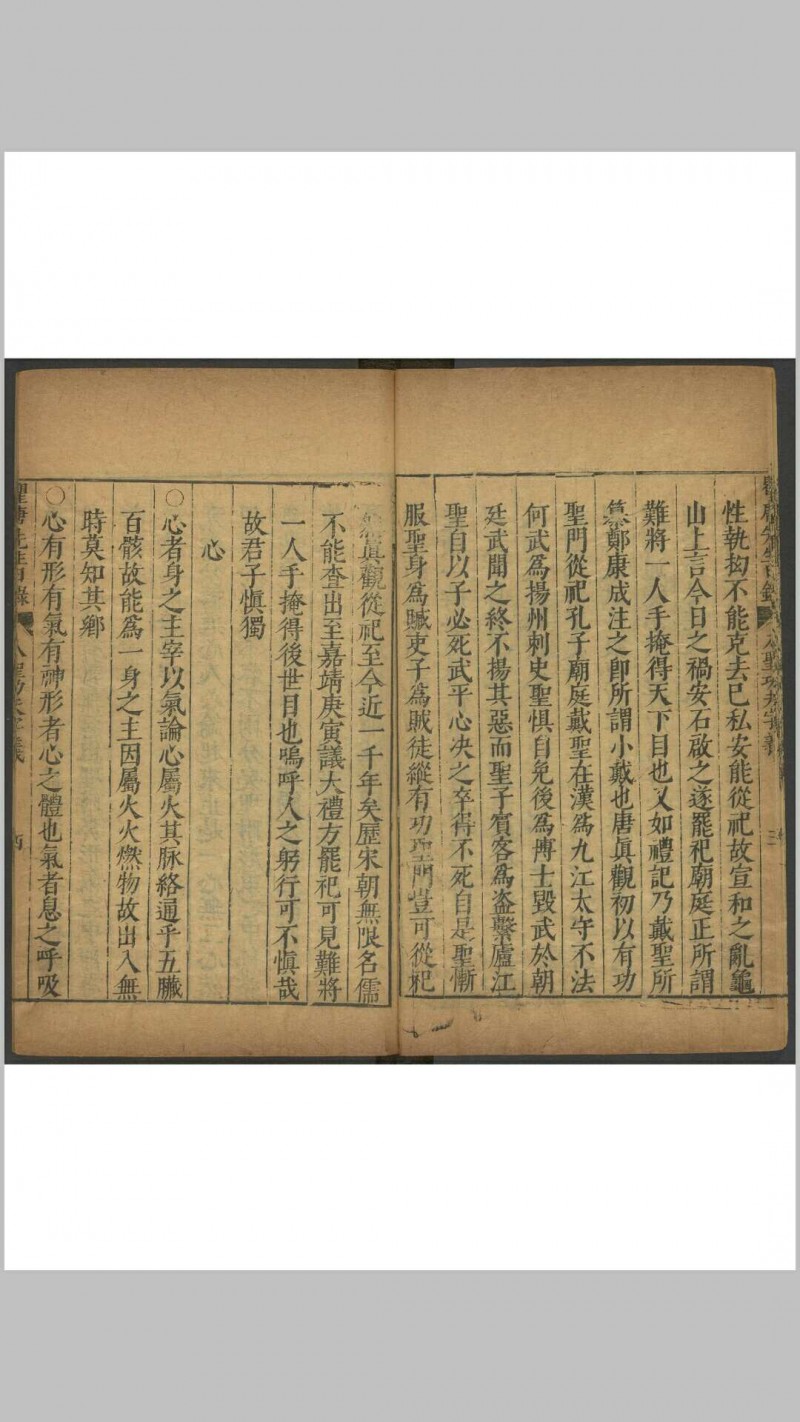 性執拗不能克去己私安能從祀故宣和之亂龜
山上言今日之禍安石啟之遂罷祀廟庭正所謂
難將一人手掩得天下目也又如禮記乃戴聖所
纂鄭康成注之卽所謂小戴也唐眞觀初以有功
聖門從祀孔子廟庭戴聖在漢爲九江太守不法
何武爲揚州刺史聖惧自免後爲博士毀武於朝
廷武聞之終不揚其惡而聖子賓客爲盗繫廬江
聖自以子必死武平心决之卒得不死自是聖慚
服聖身爲贜吏子爲賊徒縱有功聖門豈可從祀
眞觀從祀至今近一千年矣歷宋朝無限名儒
不能查出至嘉靖庚寅議大禮方罷祀可見難將
一人手掩得後世目也嗚呼人之躬行可不慎哉
故君子慎獨
心
○心者身之主宰以氣論心屬火其脉絡通乎五臟
百骸故能爲一身之主因屬火火燃物故出入無
時莫知其鄉
○心有形有氣有神形者心之體也氣者息之呼吸